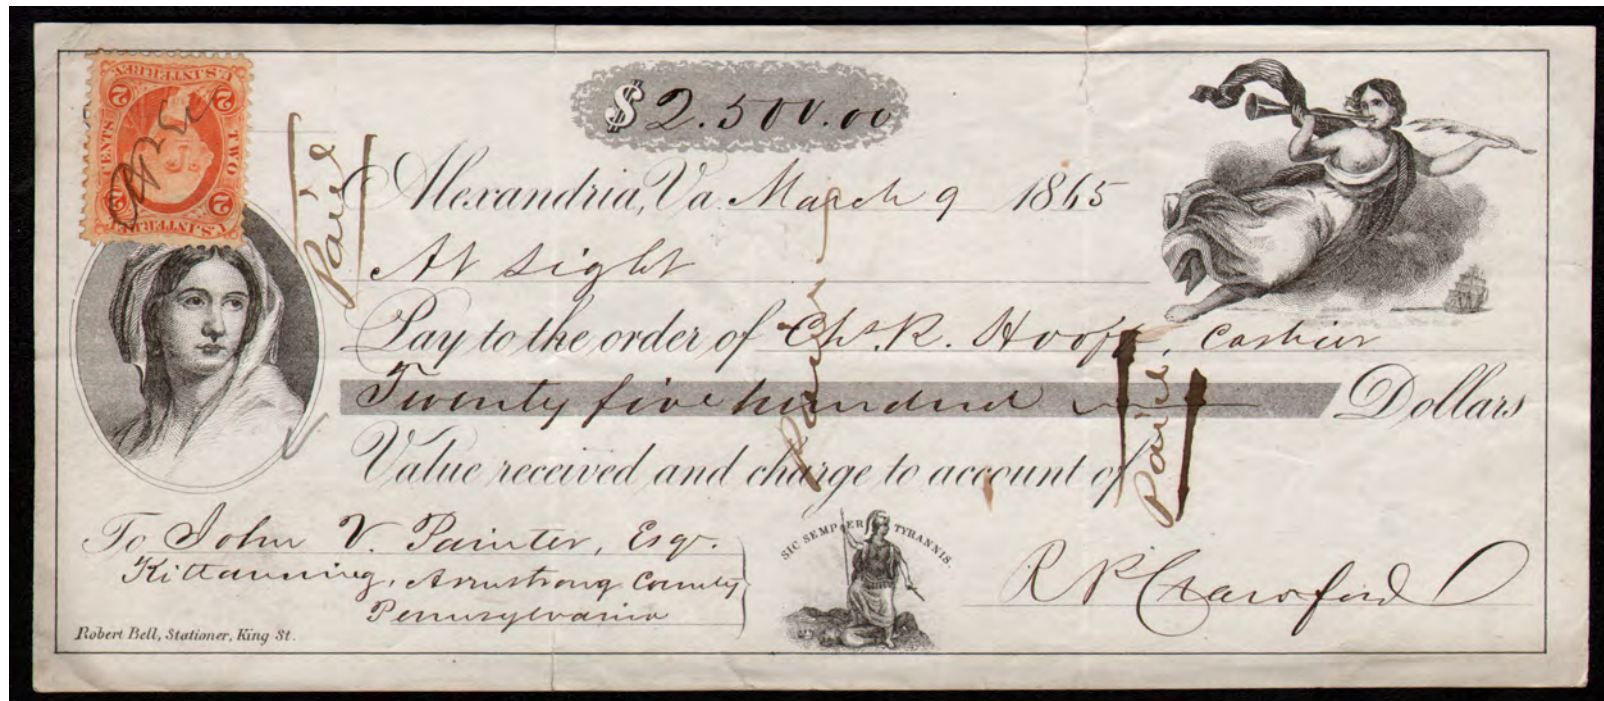 $2.500.00
U.S. INTER. REV.
2 2
TWO CENTS
2 2
U.S. INTER. REV.
Paid
Alexandria, Va. March 9 1865
At sight
Pay to the order of Chs. R. Hooff, Cashier
Twenty five hundred Dollars
Paid
Paid
Value received and charge to account of
To John V. Painter, Esqr.
Kittanning, Armstrong County
Pennsylvania
SIC SEMPER TYRANNIS.
R R Crawford
Robert Bell, Stationer, King St.